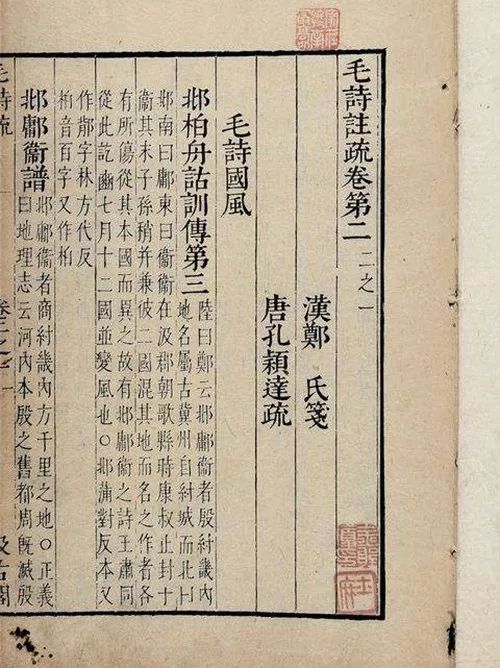 毛詩註疏卷第二 二之一
漢鄭 氏箋
唐孔穎達疏
毛詩國風
邶柏舟詁訓傳第三 陸曰鄭云邶鄘衞者殷紂畿内
地名屬古冀州自紂城而北曰
邶南曰鄘東曰衞衞在汲郡朝歌縣時康叔止封十
衞其末子孫稍并兼彼二國混其地而名之作者各
有所傷從其本國而異之故有邶鄘衞之詩王肅同
從此訖豳七月十二國並變風也○邶蒲對反本又
作鄁字林方代反
柏音百字又作栢
邶鄘衞譜 邶鄘衞者商紂畿内方千里之地○正義
曰地理志云河内本殷之舊都周既滅殷
毛詩疏 卷二之一 汲古閣